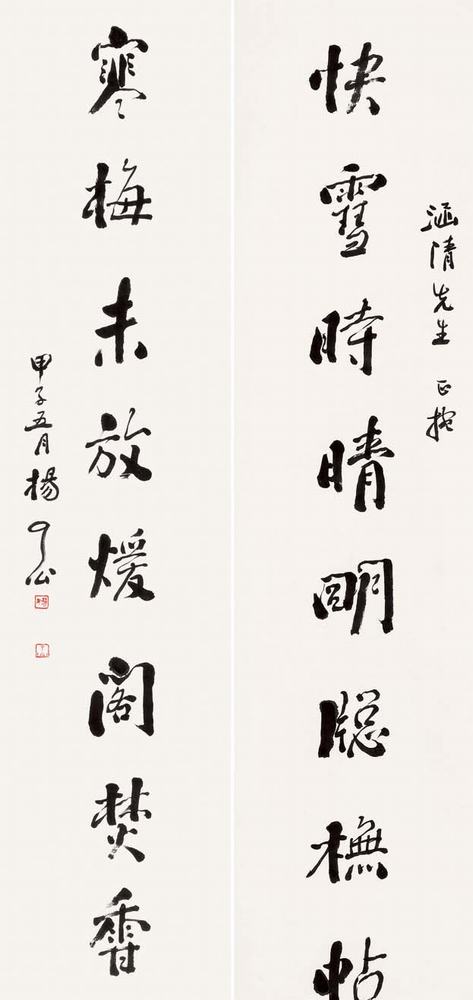 涵清先生 正捥
快雪時晴朙牕橅帖
寒梅未放煖閣焚香
甲子五月楊了公